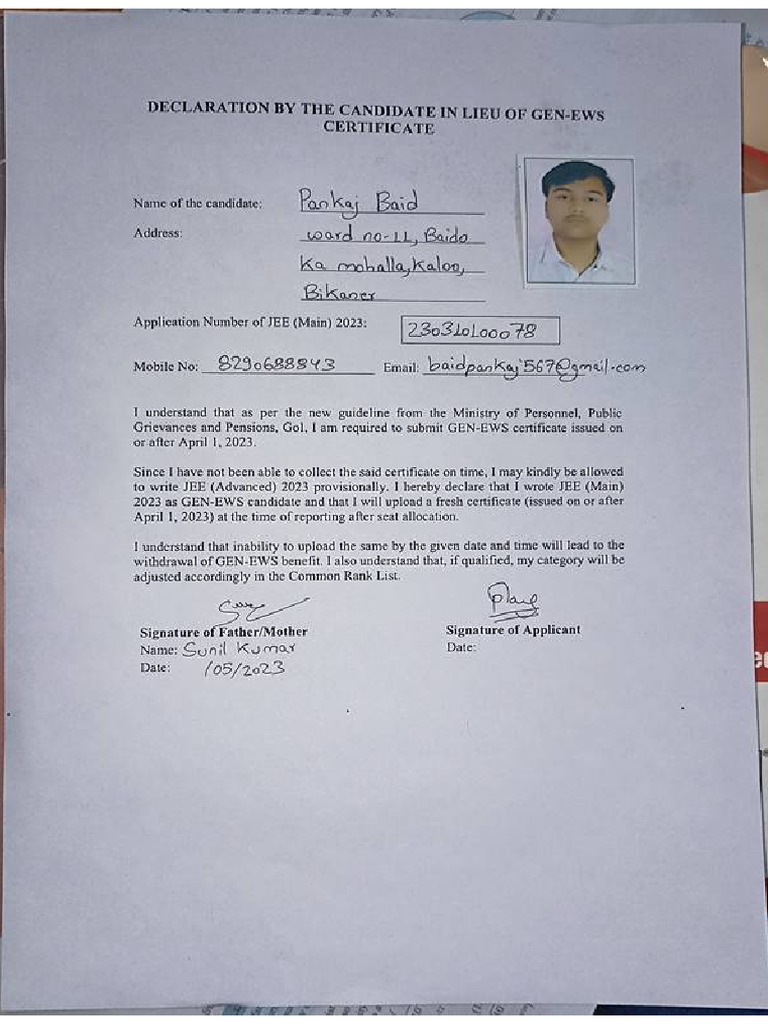 DECLARATION BY THE CANDIDATE IN LIEU OF GEN-EWS
CERTIFICATE
Name of the candidate: Pankaj Baid
Address: ward no-11, Baido
Ka mohalla, Kaloo,
Bikaner
Application Number of JEE (Main) 2023: 230310100078
Mobile No: 8290688843 Email: baidpankaj567@gmail.com
I understand that as per the new guideline from the Ministry of Personnel, Public
Grievances and Pensions, GoI, I am required to submit GEN-EWS certificate issued on
or after April 1, 2023.
Since I have not been able to collect the said certificate on time, I may kindly be allowed
to write JEE (Advanced) 2023 provisionally. I hereby declare that I wrote JEE (Main)
2023 as GEN-EWS candidate and that I will upload a fresh certificate (issued on or after
April 1, 2023) at the time of reporting after seat allocation.
I understand that inability to upload the same by the given date and time will lead to the
withdrawal of GEN-EWS benefit. I also understand that, if qualified, my category will be
adjusted accordingly in the Common Rank List.
Signature of Father/Mother Signature of Applicant
Name: Sunil Kumar Date:
Date: /05/2023